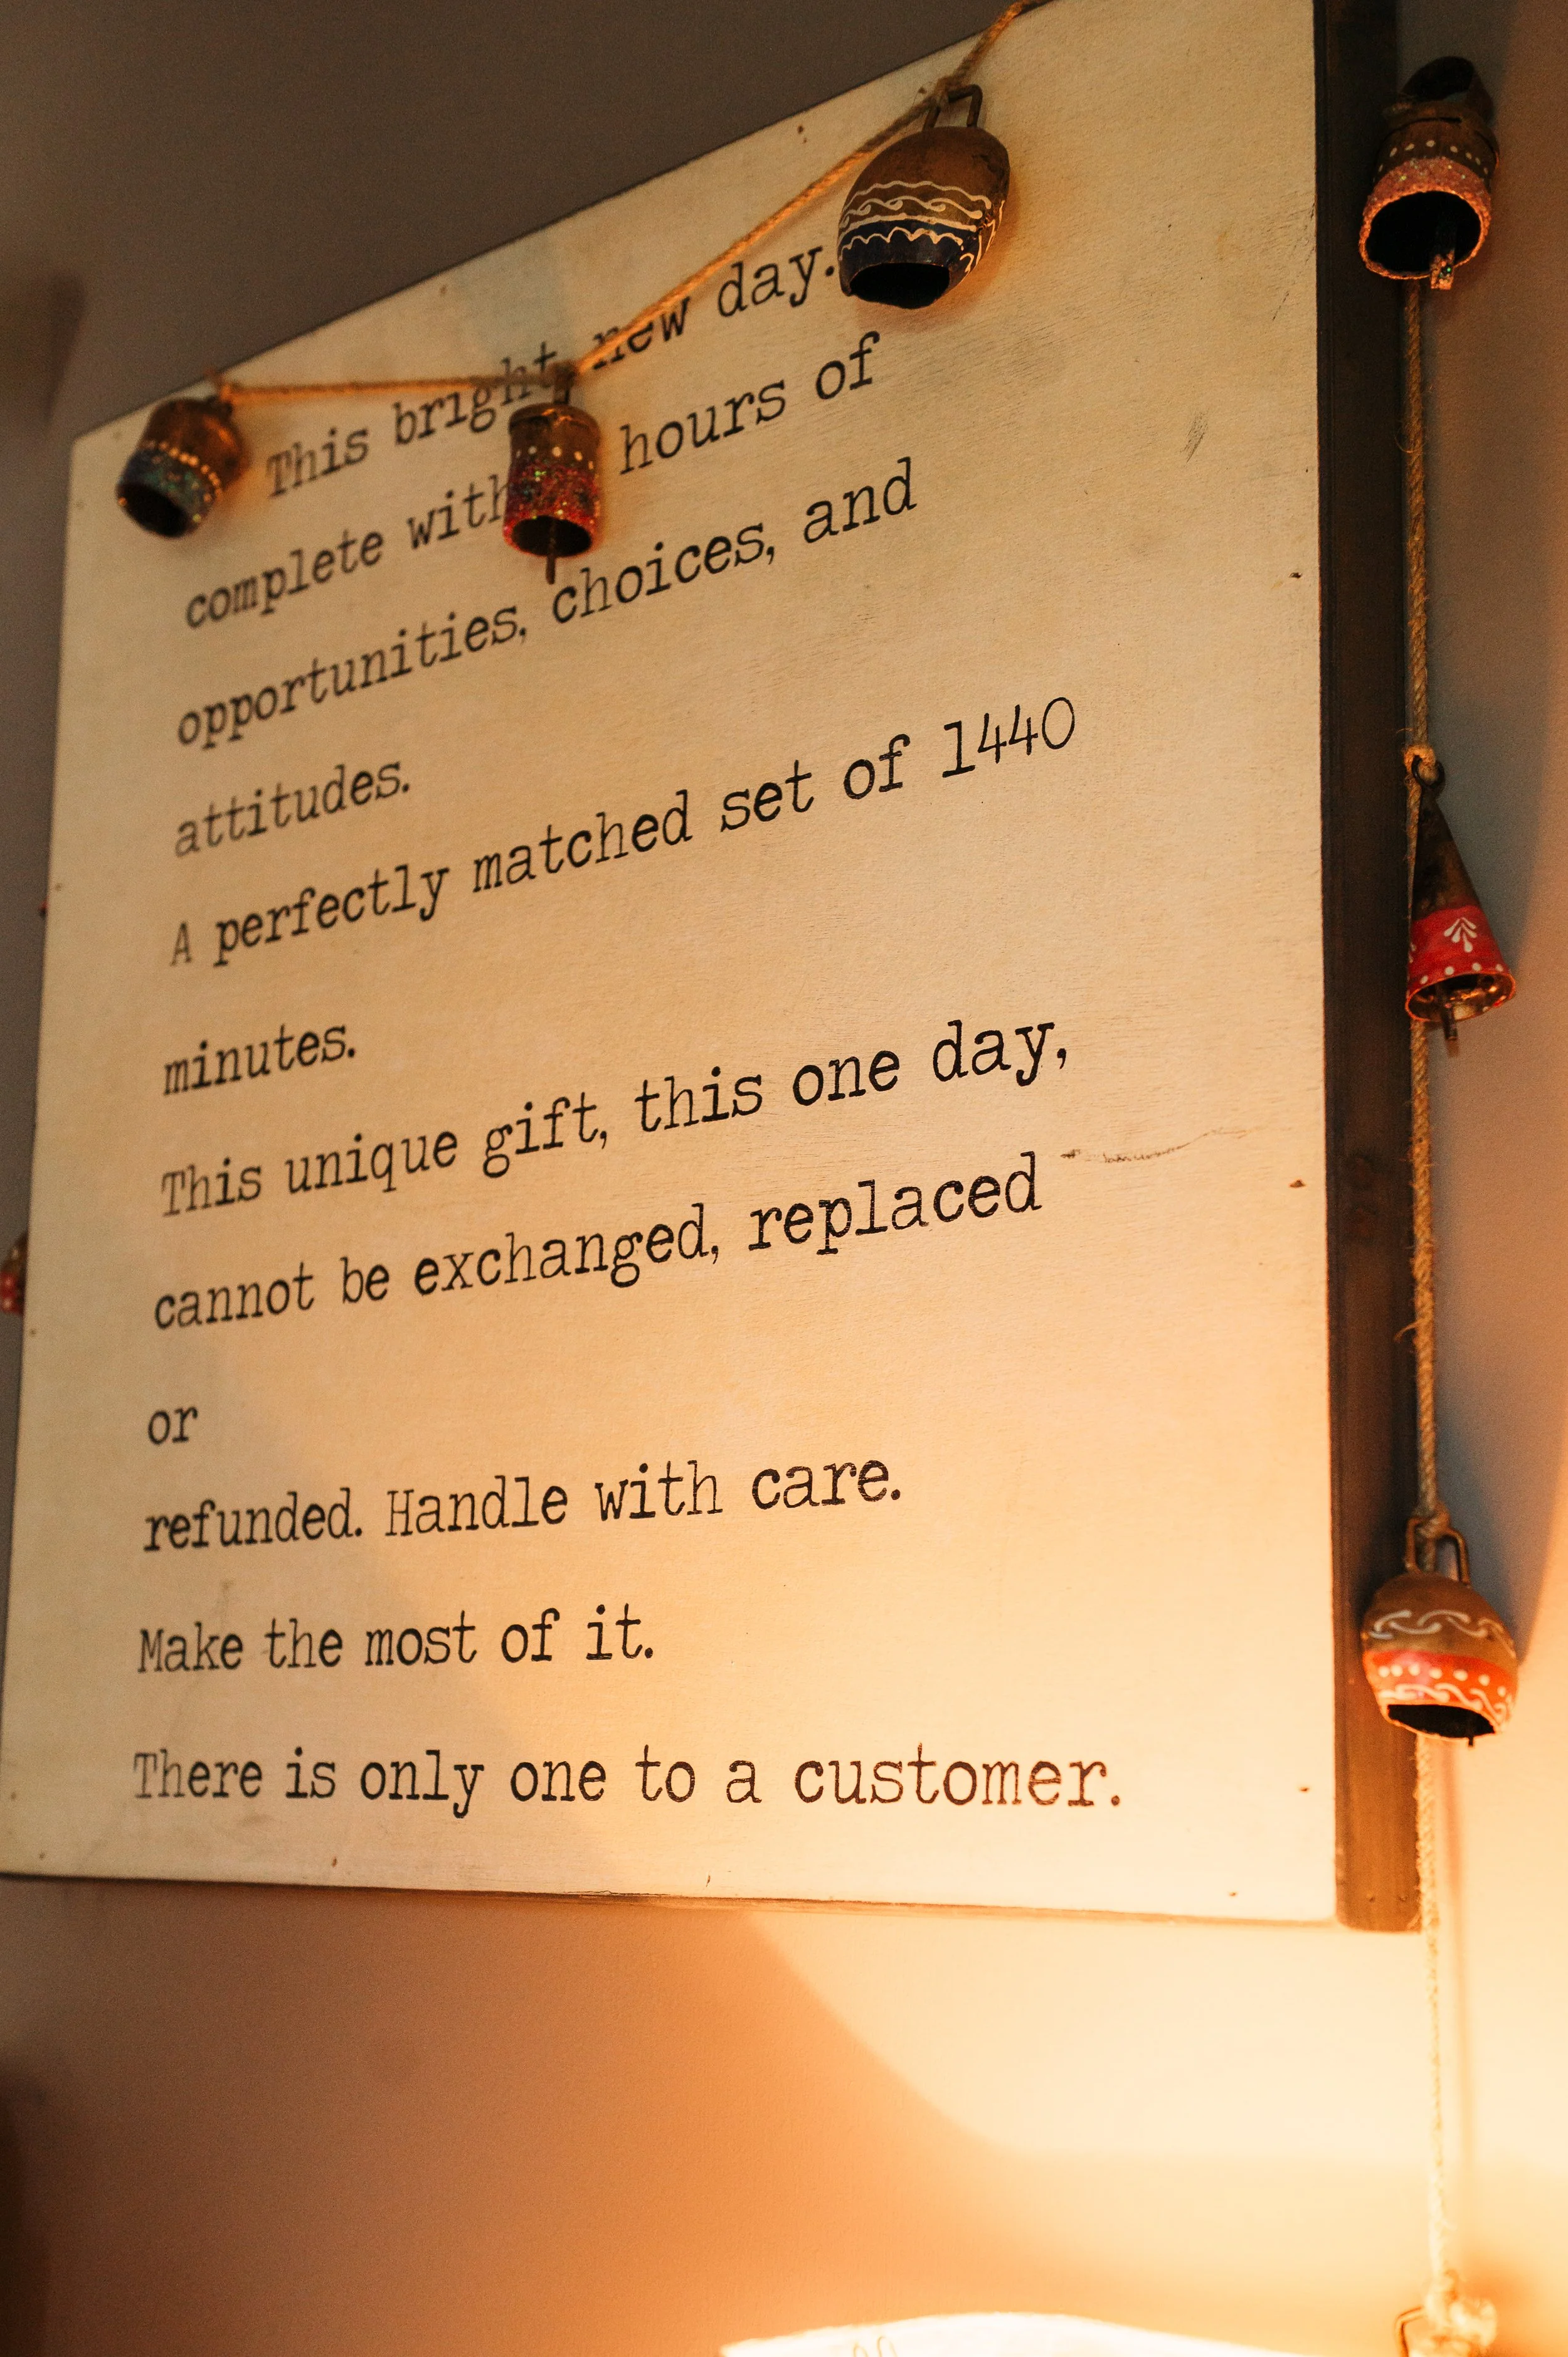 This bright, new day.
complete with hours of
opportunities, choices, and
attitudes.
A perfectly matched set of 1440
minutes.
This unique gift, this one day,
cannot be exchanged, replaced
or
refunded. Handle with care.
Make the most of it.
There is only one to a customer.